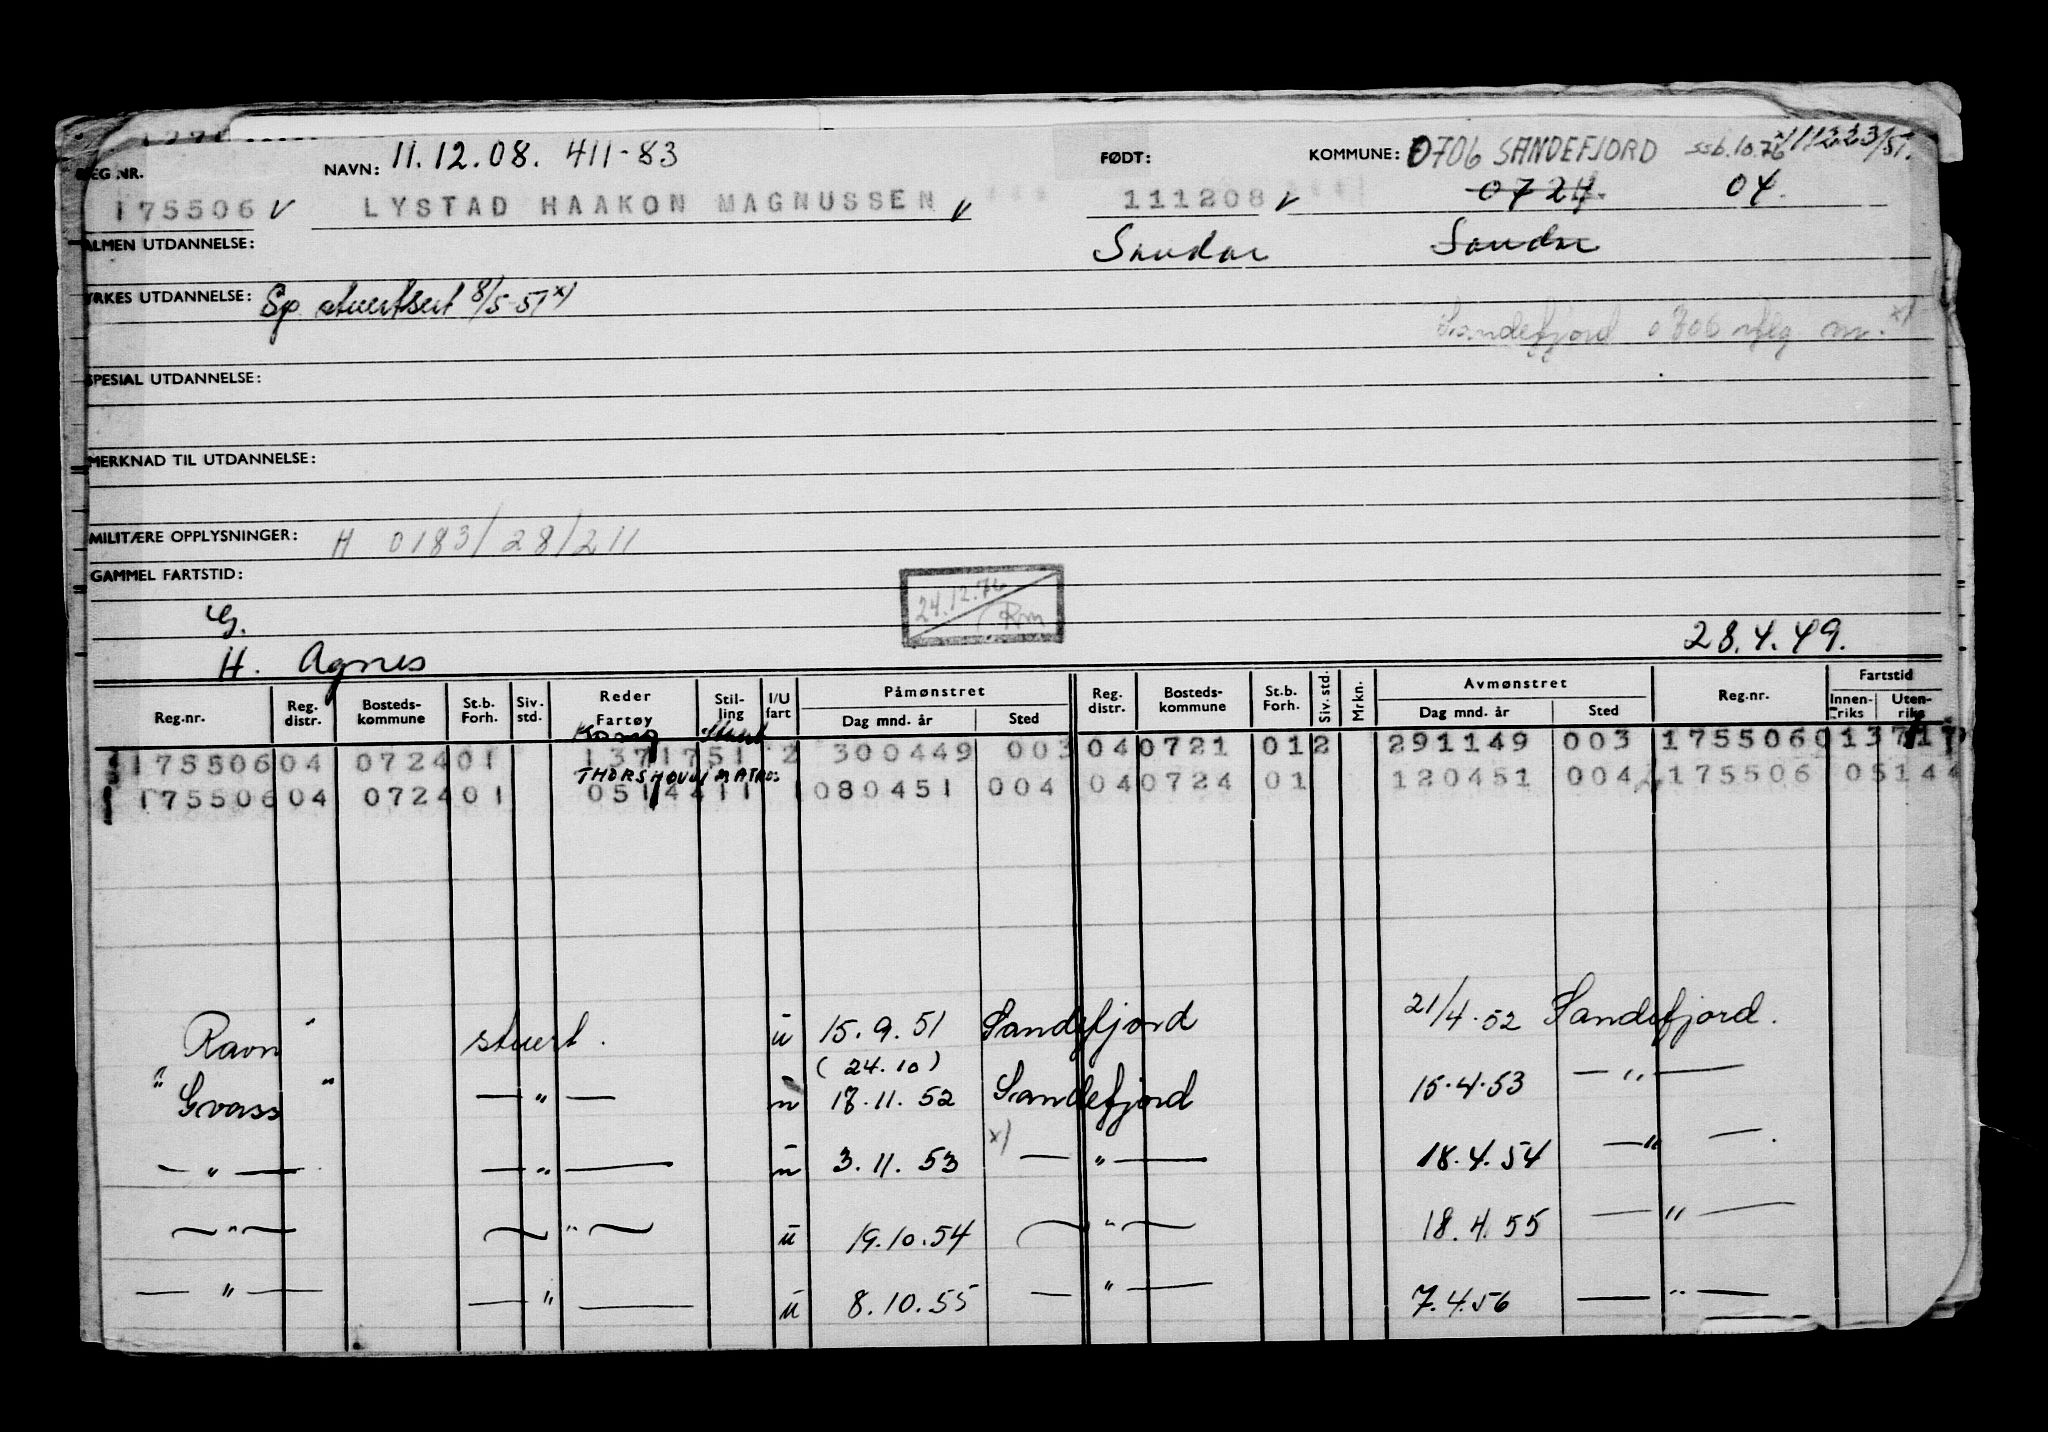 REG.NR. NAVN: 11.12.08. 411-83 FØDT: KOMMUNE: 0706 SANDEFJORD ssb.10.76 x/11223/51.
175506 V LYSTAD HAAKON MAGNUSSEN V 111208 V 0724. 04.
ALMEN UTDANNELSE: Sandar Sandar
YRKES UTDANNELSE: Sp stuertsert 8/5-51 x)
Sandefjord 0706 iflg. x)
SPESIAL UTDANNELSE:
MERKNAD TIL UTDANNELSE:
MILITÆRE OPPLYSNINGER: H 0183/28/211
GAMMEL FARTSTID:
24.12.76 Rm
G.
H. Agnes 28.4.49.
Reg.nr. Reg. distr. Bosteds-kommune St.b. Forh. Siv. std. Reder Fartøy Stil-ling I/U fart Påmønstret Dag mnd. år Sted Reg. distr. Bosteds-kommune St.b. Forh. Siv. std. Mrkn. Avmønstret Dag mnd. år Sted Reg.nr. Fartstid Innen-riks Uten-riks
Stuert
175506 04 0724 01 1371751 2 300449 003 04 0721 01 2 291149 003 175506 013717
THORSHOVDI MATROS
175506 04 0724 01 0514411 1 080451 004 04 0724 01 120451 004 175506 05144
Ravn " stuert. u 15.9.51 Sandefjord 21/4.52 Sandefjord.
(24.10)
" Gvass " — " — u 18.11.52 Sandefjord 15.4.53 — " —
— " — — " — u 3.11.53 x) — " — 18.4.54 — " —.
— " — — " — u 19.10.54 — " — 18.4.55 — " —
— " — — " — u 8.10.55 — " — 7.4.56 — " —